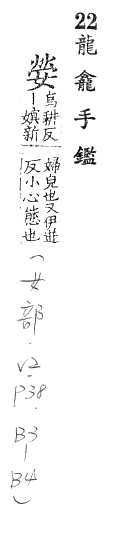 22龍龕手鑑
嫈
烏耕反
丨嬪新
婦皃也又伊迸
反小心態也
(女部.V2-P38.B3-B4)